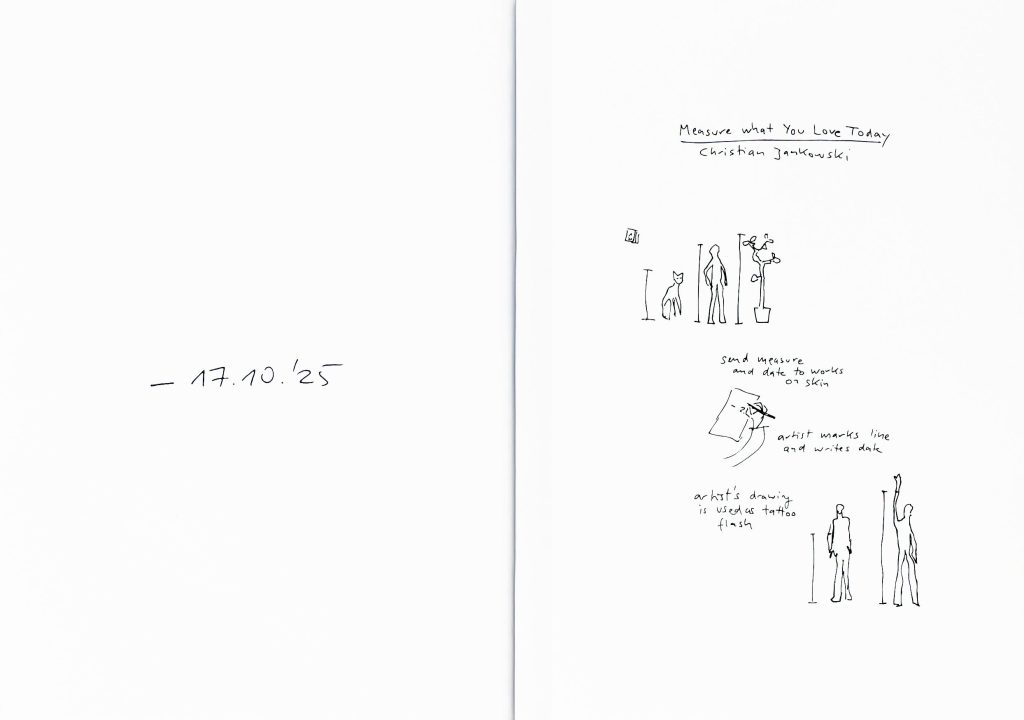 – 17.10.'25
Measure what You Love Today
Christian Jankowski
send measure
and date to works
on skin
artist marks line
and writes date
artist's drawing
is used as tattoo
flash